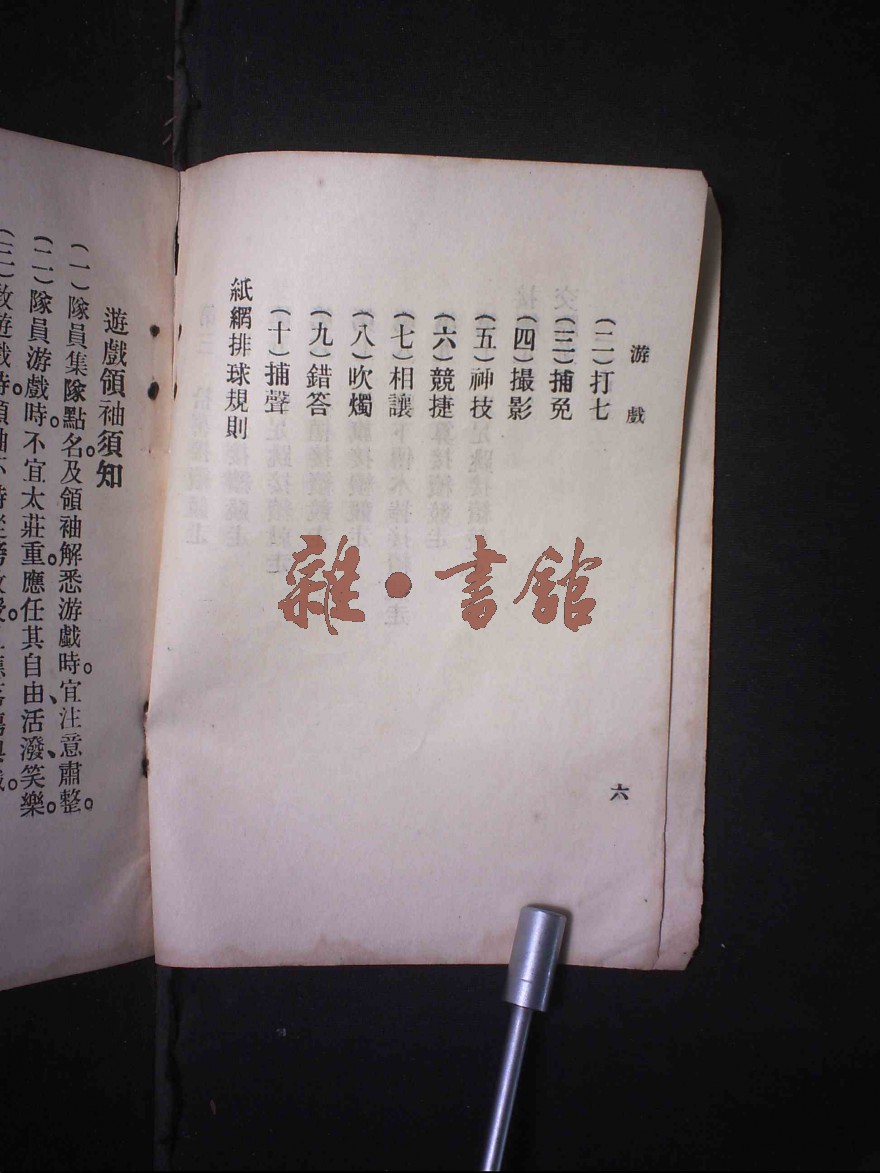 游戲
（二）打七
（三）捕免
（四）撮影
（五）神技
（六）競捷
（七）相讓
（八）吹燭
（九）錯答
（十）捕聲
紙網排球規則
六
雜・書館
遊戲領袖須知
（一）隊員集隊點名及領袖解悉游戲時、宜注意肅整。
（二）隊員游戲時不宜太莊重。應任其自由活潑、笑樂。